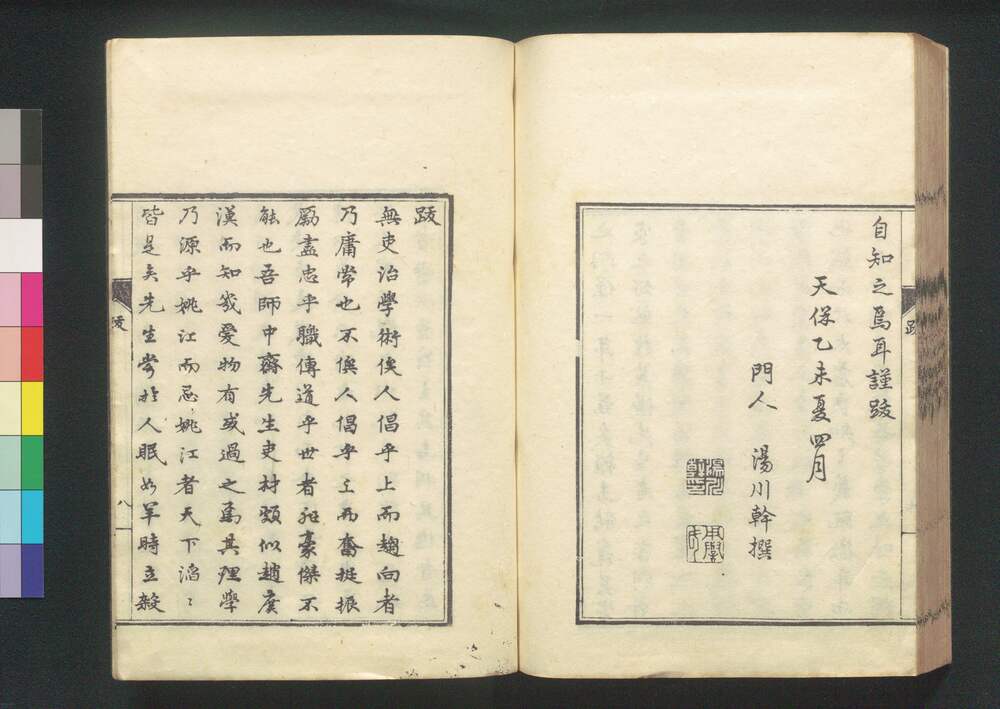 自知之爲耳謹跋
天保乙未夏四月
門人 湯川幹撰
跋
無吏治學術俟人倡乎上而趨向者
乃庸常也不俟人倡乎上而奮挺振
勵盡忠乎職傳道乎世者非豪傑不
能也吾師中齋先生吏材頗似趙廣
漢而知幾愛物有或過之焉其理學
乃源乎姚江而忌姚江者天下滔〻
皆是矣先生嘗於人眠如罕時立
跋
八